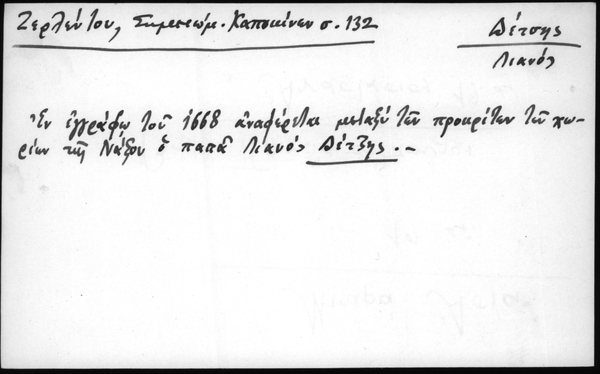 Ζερλέντου, Σημειώμ. Καπουκίνων σ. 132
Δέτσης
Λιανός
Ἐν ἐγγράφῳ τοῦ 1668 ἀναφέρεται μεταξὺ τῶν προκρίτων τῶν χω-
ρίων τῆς Νάξου ὁ παπᾶ Λιανός Δέτζης. –